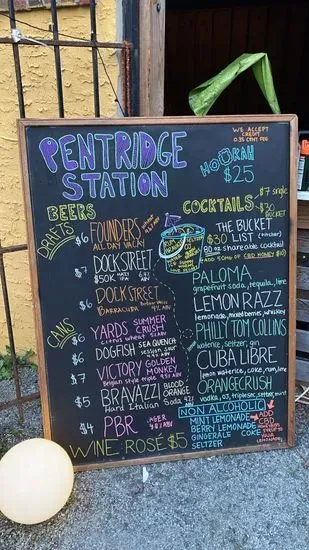 PENTRIDGE
STATION
WE ACCEPT
CREDIT
0.35 CENT FEE
HOOKAH
$25
BEERS
DRAFTS
$6 FOUNDERS
ALL DAY VACAY
$7 DOCK STREET
$50K HAZY
IPA
$6 DOCK STREET
BARRACUDA
CANS
$6 YARDS SUMMER
CRUSH
citrus wheat 5% ABV
$6 DOGFISH SEA QUENCH
session sour
$7 VICTORY GOLDEN
MONKEY
Belgian style triple 9.5% ABV
$5 BRAVAZZI BLOOD
ORANGE
Hard Italian Soda 4.2%
ABV
$4 PBR LAGER
4.8% ABV
WINE: ROSÉ $5
COCKTAILS
$7 single
$30
BUCKET
THE BUCKET
$30 LIST (pitcher)
80 oz. shareable cocktail
ADD 50MG OF CBD HONEY $10
PALOMA
grapefruit soda, tequila, lime
LEMON RAZZ
lemonade, mixed berries, whiskey
PHILLY TOM COLLINS
waterice, seltzer, gin
CUBA LIBRE
lemon waterice, coke, rum, lime
ORANGE CRUSH
vodka, OJ, triple sec, seltzer, mint
NON ALCOHOLIC
MINT LEMONADE
BERRY LEMONADE
GINGERALE COKE
SELTZER
ADD
CBD